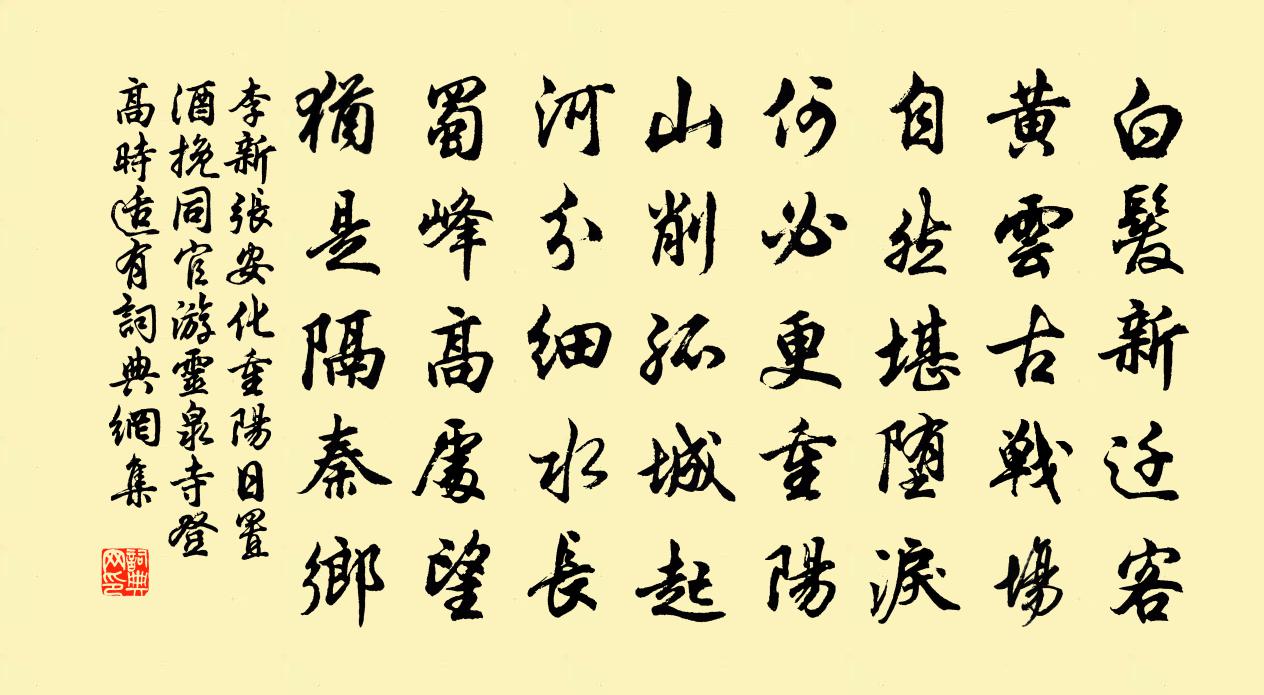 白髮新遷客
黃雲古戰場
自然堪墮淚
何必更重陽
山削孤城起
河分細水長
蜀峰高處望
猶是隔秦鄉
李新張安化重陽日置
酒挽同官游靈泉寺登
高時适有詞典網集
詞典網印